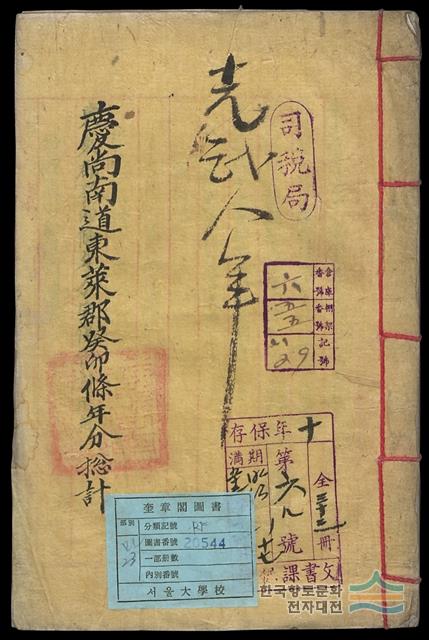 光武八年
司稅局
慶尙南道東萊郡癸卯條年分摠計
倉庫番號
棚架番號
記號
六
五五
29
十年保存
全三十二冊
第六九號
滿期
文書課
奎章閣圖書
部別
分類記號
圖書番號 20544
一部册數
內別番號
서울大學校
한국향토문화
전자대전